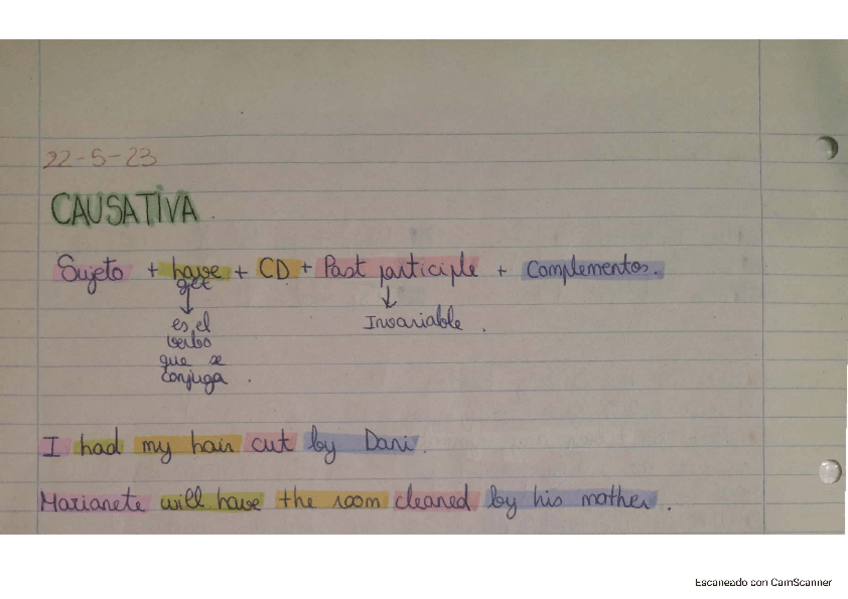 22-5-23
CAUSATIVA.
Sujeto + have + CD + Past participle + Complementos.
get
es el Invariable.
verbo
que se
conjuga.
I had my hair cut by Dani.
Marianete will have the room cleaned by his mother.
Escaneado con CamScanner